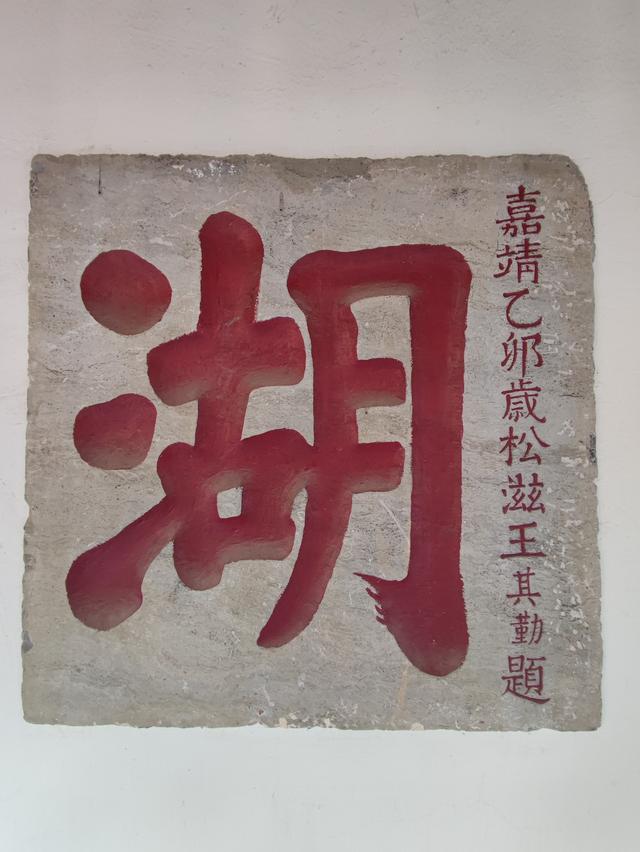 湖
嘉靖乙卯歲松滋王其勤題